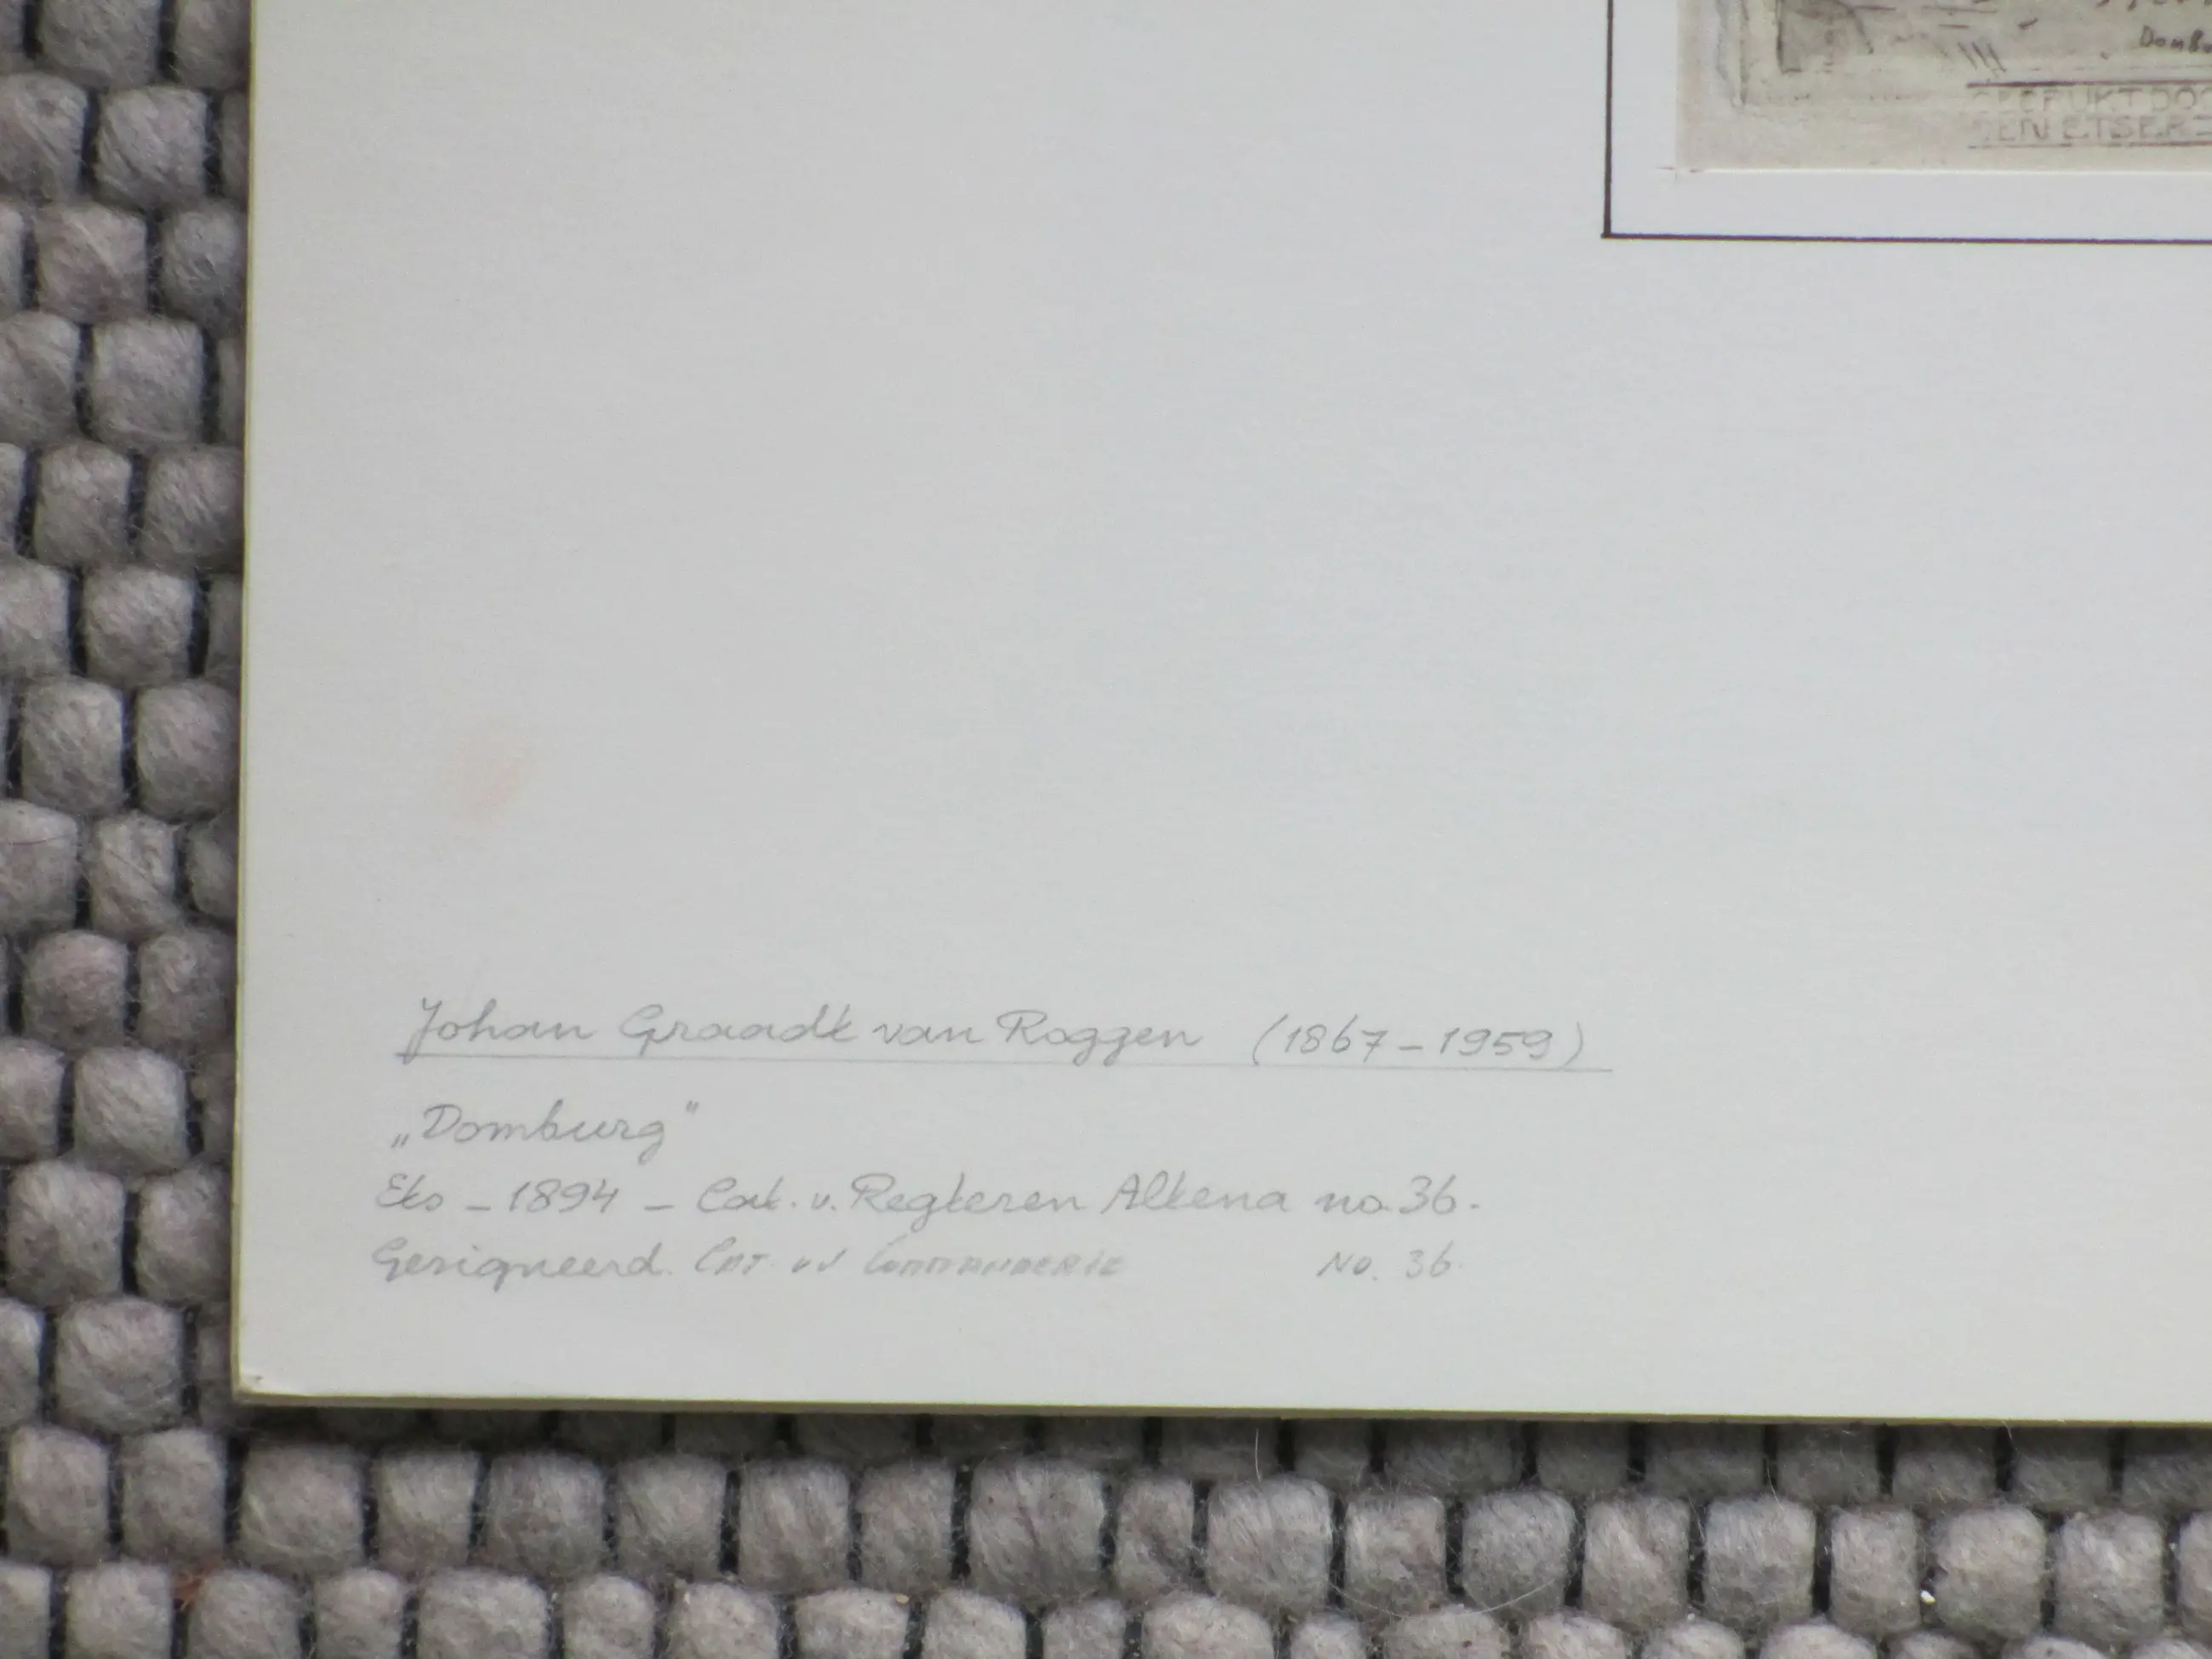 Domb
GEDRUKT DOO
DEN ETSER
Johan Graadt van Roggen (1867-1959)
„Domburg"
Ets - 1894 - Cat. v. Regteren Altena no. 36.
Gesigneerd. CAT. COMMANDERIE NO. 36